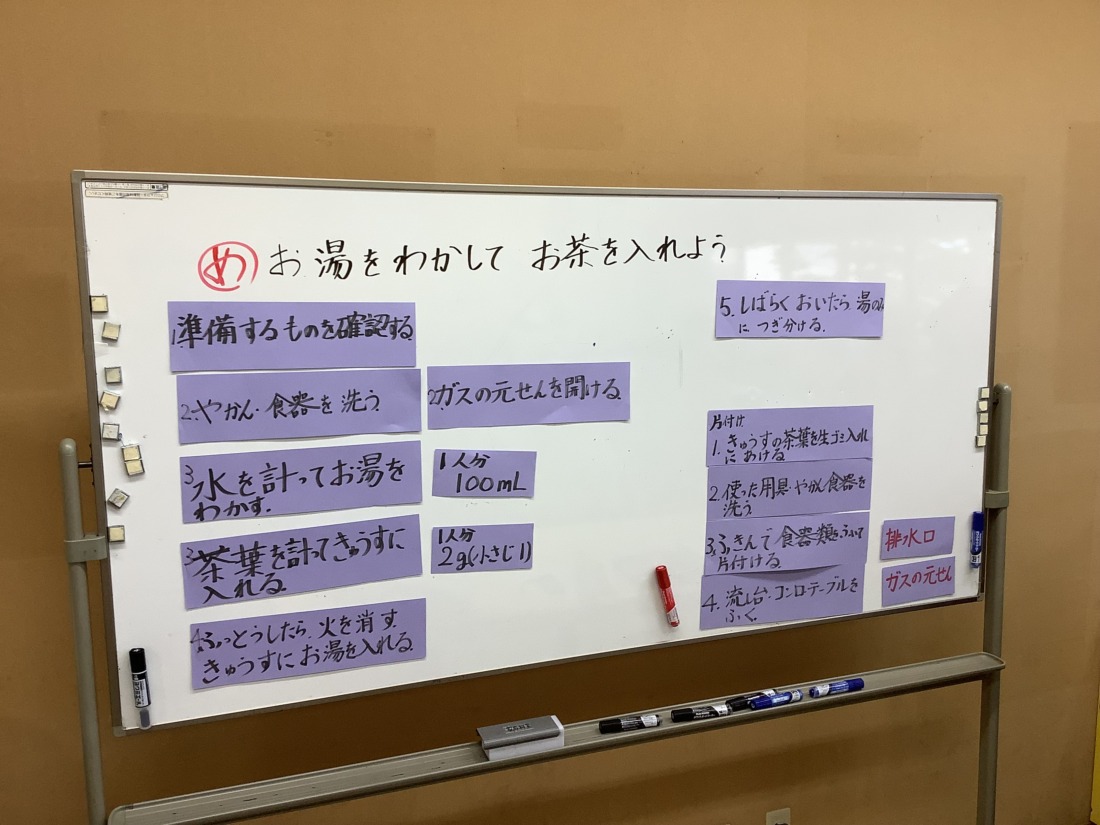 め お湯をわかして お茶を入れよう
1.準備するものを確認する
2.やかん・食器を洗う
2.ガスの元せんを開ける
3.水を計ってお湯を
わかす.
1人分
100mL
3.茶葉を計ってきゅうすに
入れる
1人分
2g(小さじ1)
4.ふっとうしたら火を消す.
きゅうすにお湯を入れる.
5.しばらくおいたら湯のみ
に つぎ分ける.
片付け
1.きゅうすの茶葉を生ゴミ入れ
にあける
2.使った用具・やかん食器を
洗う
3.ふきんで食器類をふいて
片付ける
4.流し台・コンロ・テーブルを
ふく.
排水口
ガスの元せん